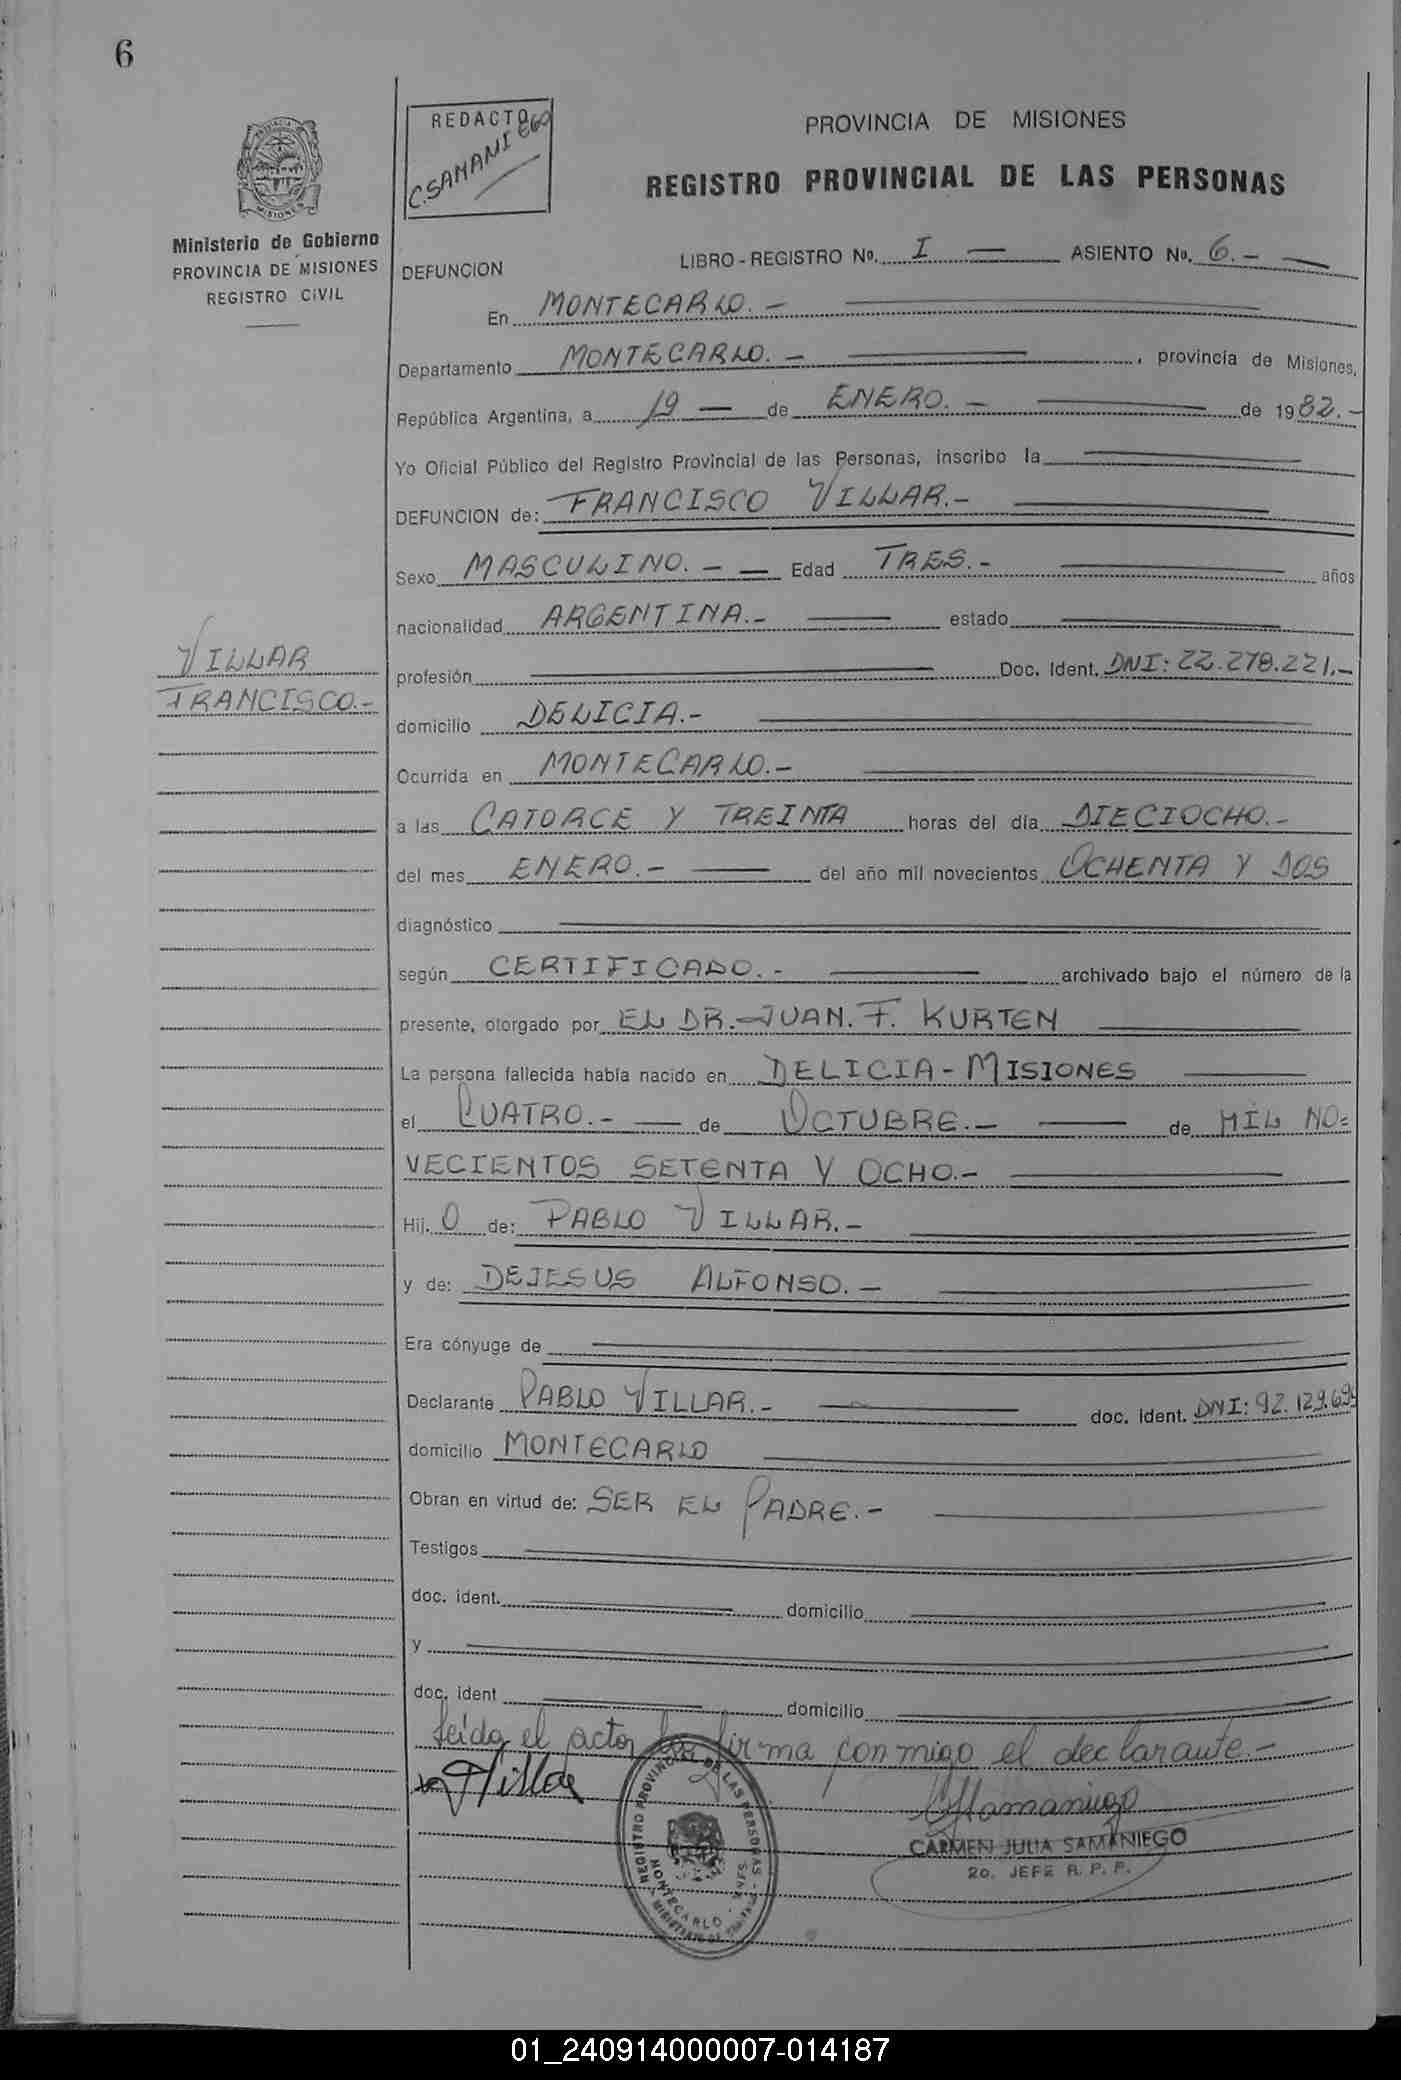 6
REDACTO
C. SAMANIEGO
PROVINCIA DE MISIONES
REGISTRO PROVINCIAL DE LAS PERSONAS
Ministerio de Gobierno
PROVINCIA DE MISIONES
REGISTRO CIVIL
DEFUNCION LIBRO-REGISTRO No. I ASIENTO No. 6.-
En MONTECARLO.-
Departamento MONTECARLO.- , provincia de Misiones,
República Argentina, a 19 de ENERO.- de 1982.-
Yo Oficial Público del Registro Provincial de las Personas, inscribo la
DEFUNCION de: FRANCISCO VILLAR.-
Sexo MASCULINO.- Edad TRES.- años
nacionalidad ARGENTINA.- estado
VILLAR
FRANCISCO.-
profesión Doc. Ident. DNI: 22.278.221.-
domicilio DELICIA.-
Ocurrida en MONTECARLO.-
a las CATORCE Y TREINTA horas del día DIECIOCHO.-
del mes ENERO.- del año mil novecientos OCHENTA Y DOS
diagnóstico
según CERTIFICADO.- archivado bajo el número de la
presente, otorgado por EL DR. JUAN. F. KURTEN
La persona fallecida había nacido en DELICIA-MISIONES
el CUATRO.- de OCTUBRE.- de MIL NO=
VECIENTOS SETENTA Y OCHO.-
Hij. O de: PABLO VILLAR.-
y de: DEJESUS ALFONSO.-
Era cónyuge de
Declarante PABLO VILLAR.- doc. ident. DNI: 92.129.699
domicilio MONTECARLO
Obran en virtud de: SER EL PADRE.-
Testigos
doc. ident. domicilio
y
doc. ident domicilio
Leida el acta la firma conmigo el declarante.-
Villar
CSamaniego
CARMEN JULIA SAMANIEGO
2o. JEFE R. P. P.
REGISTRO PROVINCIAL DE LAS PERSONAS
MONTECARLO - MNES.
01_240914000007-014187